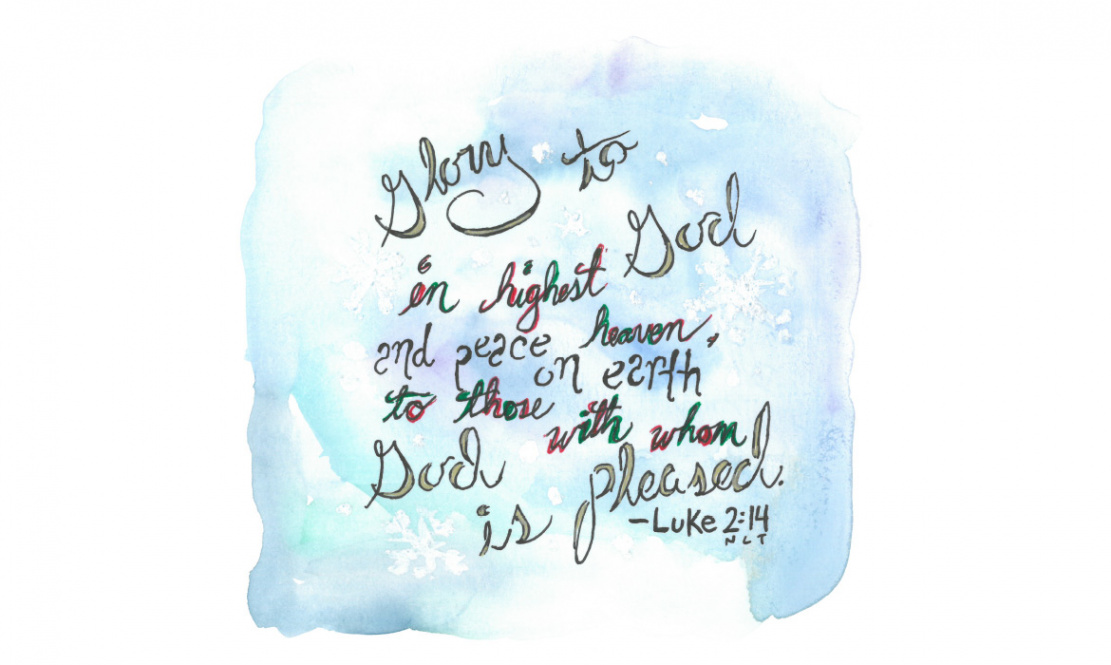 Glory to
God
in highest
heaven,
and peace
on earth
to those
with whom
God
is pleased.
-Luke 2:14
NLT